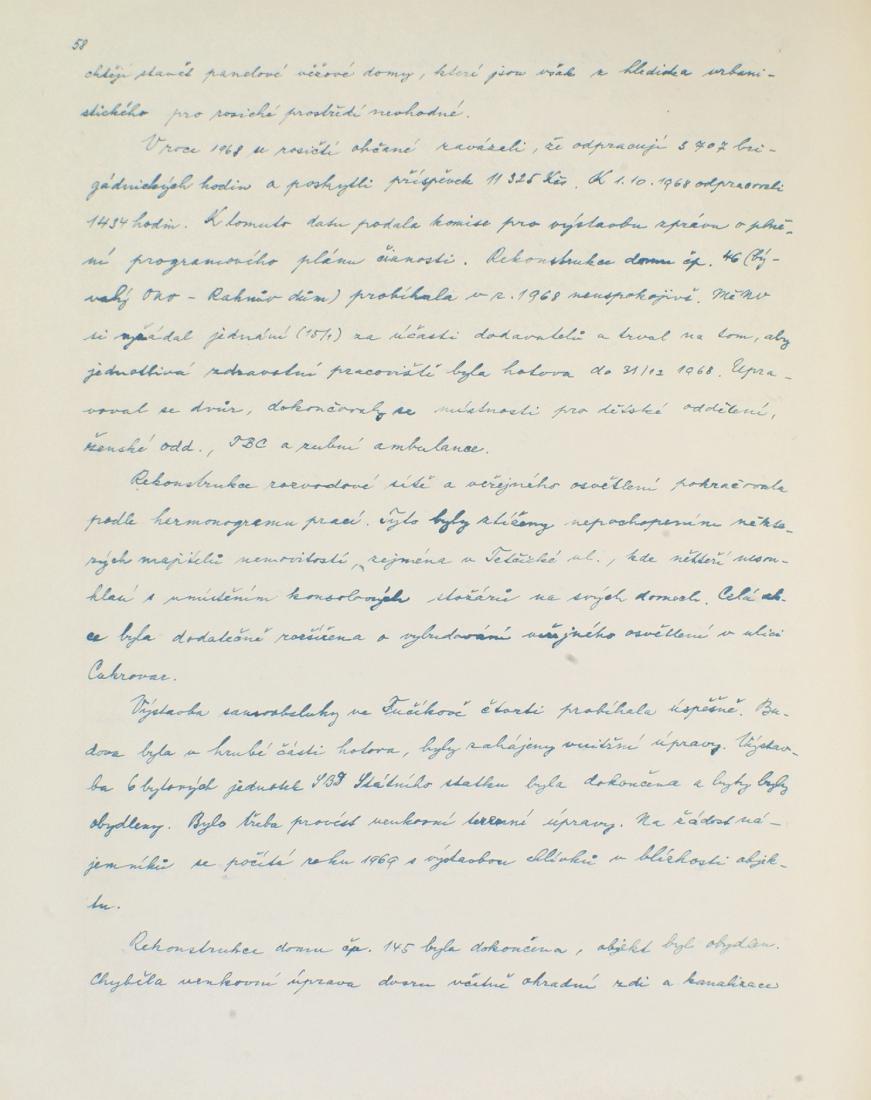 58
chtějí stavět panelové věžové domy, které jsou však z hlediska urbani-
stického pro rosické prostředí nevhodné.
V roce 1968 se rosičtí občané zavázali, že odpracují 5 707 bri-
gádnických hodin a poskytli příspěvek 11 325 Kčs. K 1.10.1968 odpracovali
1434 hodin. K tomuto datu podala komise pro výstavbu zprávu o plně-
ní programového plánu činnosti. Rekonstrukce domu čp. 46 (bý-
valý Oko - Rahnův dům) probíhala v r. 1968 neuspokojivě. MěNV
si vyžádal jednání (15/1) za účasti dodavatelů a trval na tom, aby
jednotlivá zdravotní pracoviště byla hotova do 31/12 1968. Upra-
voval se dvůr, dokončovaly se místnosti pro dětské oddělení,
ženské odd., TBC a zubní ambulance.
Rekonstrukce rozvodové sítě a veřejného osvětlení pokračovala
podle harmonogramu prací. Tyto byly ztíženy nepochopením někte-
rých majitelů nemovitostí, zejména v Tetčické ul., kde někteří nesou-
hlasí s umístěním konsolových stožárů na svých domech. Celá ak-
ce byla dodatečně rozšířena o vybudování veřejného osvětlení v ulici
Cukrovar.
Výstavba samoobsluhy ve Fučíkově čtvrti probíhala úspěšně. Bu-
dova byla v hrubé části hotova, byly zahájeny vnitřní úpravy. Výstav-
ba 6 bytových jednotek SBD Státního statku byla dokončena a byty byly
obydleny. Bylo třeba provést venkovní terenní úpravy. Na žádost ná-
jemníků se počítá roku 1969 s výstavbou chlívků v blízkosti objek-
tu.
Rekonstrukce domu čp. 145 byla dokončena, objekt byl obydlen.
Chyběla venkovní úprava dvoru včetně ohradní zdi a kanalizace